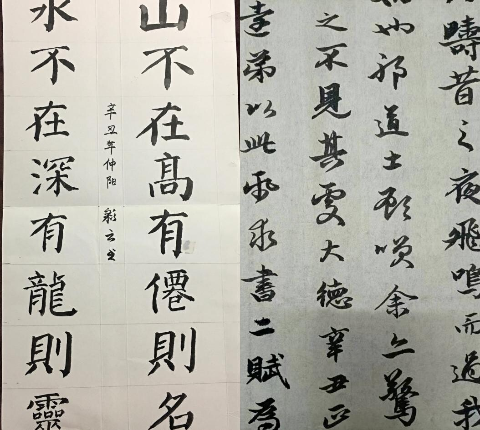 山不在髙有僊則名
辛丑年仲阳 彩云书
水不在深有龍則靈
疇昔之夜飛鳴而過我
也邪道士顾咲余亦驚
之不見其處大德辛丑正
遠弟以此紙求書二賦為